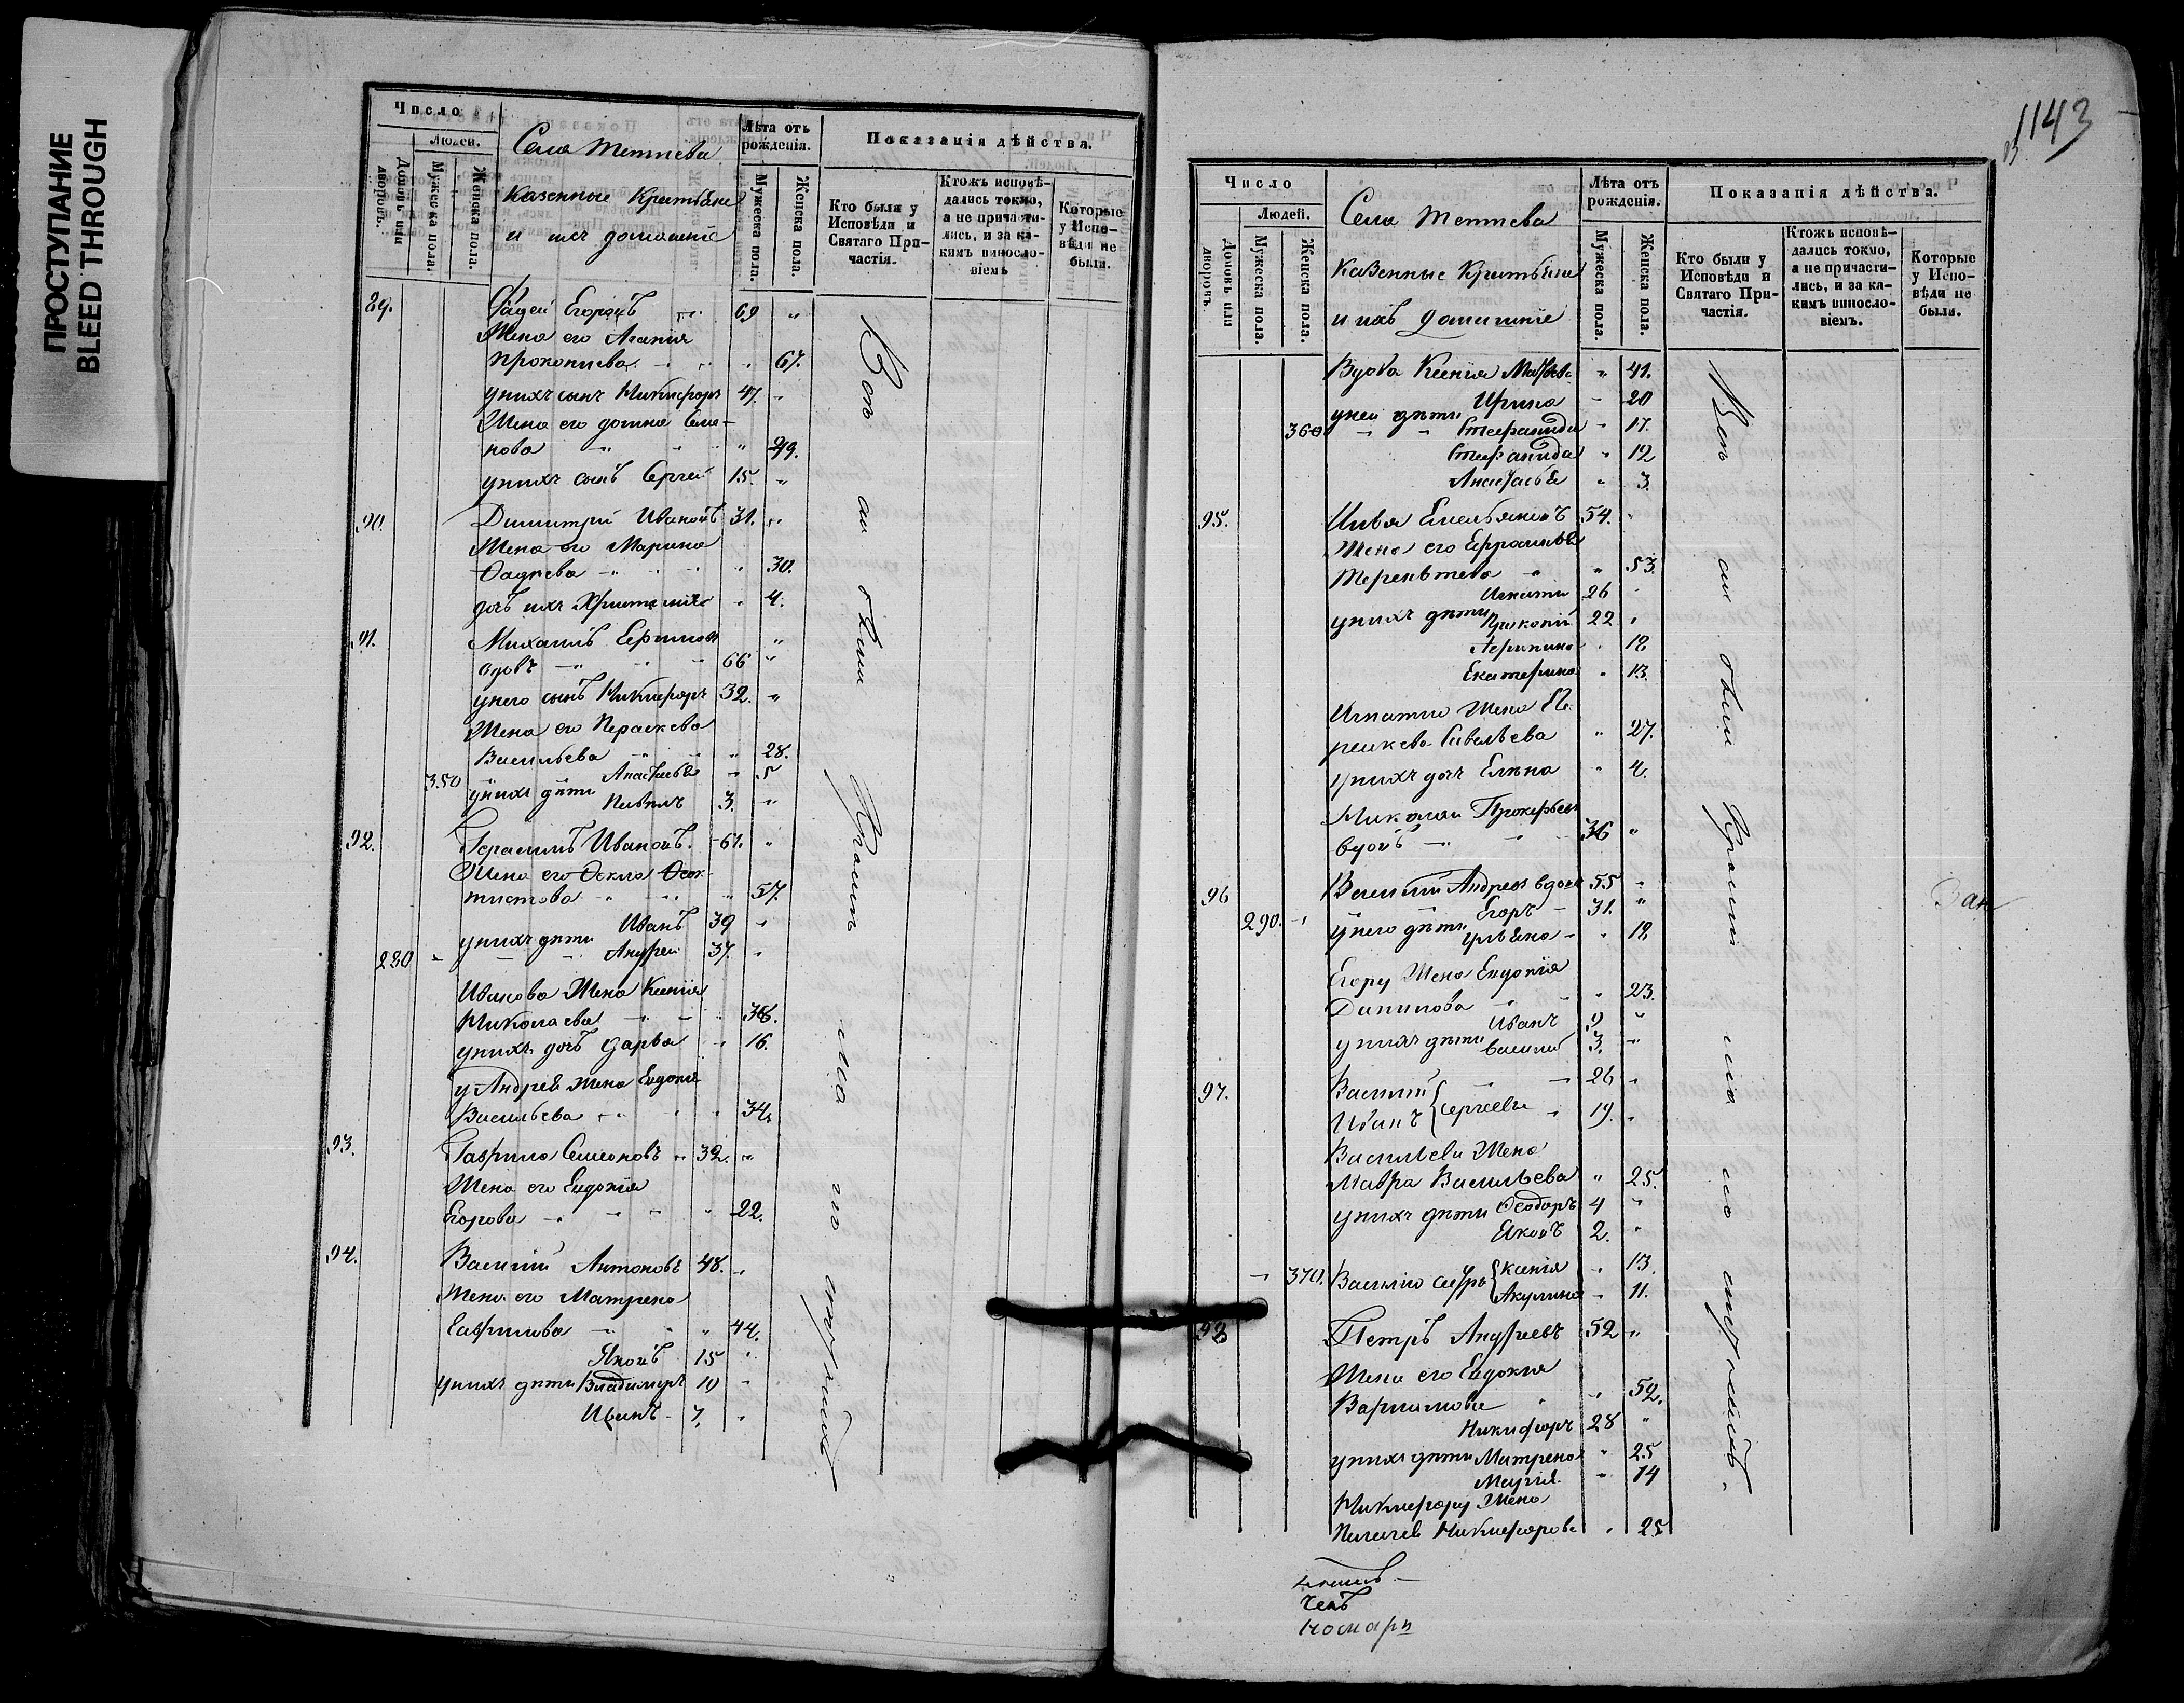 ПРОСТУПАНИЕ
BLEED THROUGH
Число
Людей.
Домовъ или дворовъ.
Мужеска пола.
Женска пола.
Села Тетнева
казенные Крестьяне
и ихъ домашніе
Лѣта отъ рожденія.
Мужеска пола.
Женска пола.
Показанія дѣйства.
Кто были у Исповѣди и Святаго Причастія.
Ктожъ исповѣдались токмо, а не причастились, и за какимъ винословіемъ
Которые у Исповѣди не были.
89. Егоровъ 69 "
Жена его Агапія
Прокопиева 67.
у нихъ сынъ Никифоръ 47. "
Жена его Домна Семе-
нова " 49.
у нихъ сынъ Сергей 15. "
90. Димитрій Ивановъ 31. "
Жена его Марина
Фадеева " 30.
дочь ихъ Христина " 4.
91. Михаилъ Ефимовъ "
вдовъ 66 "
у него сынъ Никифоръ 32. "
Жена его Параскева
Васильева " 28.
350 у нихъ дѣти Анастасья " 5
Павелъ 3. "
92. Герасимъ Ивановъ. 61. "
Жена его Фекла Феок-
тистова " 57.
у нихъ дѣти Иванъ 39 "
280 Андрей 37. "
Иванова Жена Ксенія
Николаева 38.
у нихъ дочь Дарья " 16.
у Андрея Жена Евдокія
Васильева " 34.
93. Гаврила Семеновъ 32. "
Жена его Евдокія
Егорова " 22.
94. Василій Антоновъ 48. "
Жена его Матрена
Гаврилова " 44.
Яковъ 15 "
у нихъ дѣти Владимиръ 10 "
Иванъ 7. "
Всѣ
были
1143
Число
Людей.
Домовъ или дворовъ.
Мужеска пола.
Женска пола.
Села Тетнева
казенные Крестьяне
и ихъ домашніе
Лѣта отъ рожденія.
Мужеска пола.
Женска пола.
Показанія дѣйства.
Кто были у Исповѣди и Святаго Причастія.
Ктожъ исповѣдались токмо, а не причастились, и за какимъ винословіемъ.
Которые у Исповѣди не были.
Вдова Ксенія " 41.
у ней дѣти Ирина " 20
360 Стефанида " 17.
Стефанида " 12
Анастасья " 3.
95. Илья Емельяновъ 54. "
Жена его
Терентиева " 53.
Игнатій 26 "
у нихъ дѣти Прокопій 22 "
" 18
Екатерина " 13.
Игнатія Жена Па-
раскева Савельева " 27.
у нихъ дочь Елена " 4.
Николай Прокофьевъ
вдовъ 36 "
96 Василій Андреевъ вдовъ 55 "
290. у него дѣти Егоръ 31. "
Ульяна " 18
Егору Жена Евдокія
Данилова " 23.
Иванъ 9 "
у нихъ дѣти Василій 3. "
97. Василій 26 "
Иванъ Сергеевы 19. "
Васильева Жена
Мавра Васильева " 25.
у нихъ дѣти Феодоръ 4 "
Яковъ 2. "
370. Василію сестры Ксенія " 13.
Акулина " 11.
98 Петръ Андреевъ 52 "
Жена его Евдокія
" 52.
Никифоръ 28 "
у нихъ дѣти Матрена " 25
Марія " 14
Никифору Жена
Пелагея Никифорова " 25
Всѣ
были